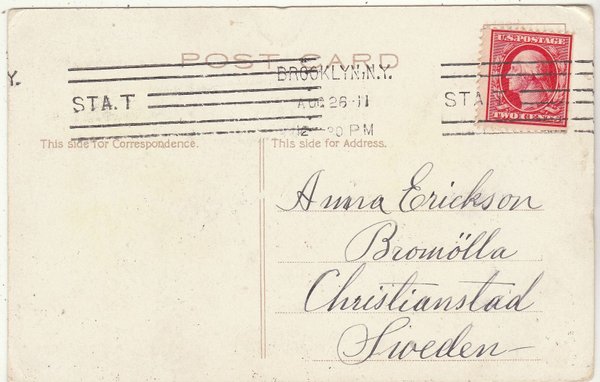 POST CARD
U.S. POSTAGE
BROOKLYN, N.Y.
Y.
STA. T
AUG 26 11
STA
12 30 PM
TWO CENTS
This side for Correspondence.
This side for Address.
Anna Erickson
Bromölla
Christianstad
Sweden